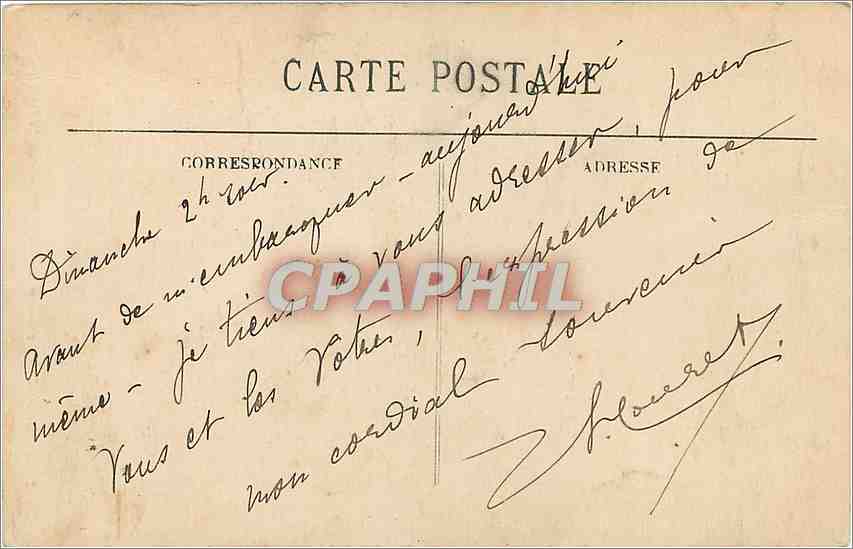 CARTE POSTALE
CORRESPONDANCE
ADRESSE
Dimanche 2h soir.
avant de m'embarquer - aujourd'hui
même - je tiens à vous adresser, pour
Vous et les Votres, l'expression de
mon cordial souvenir
CPAPHIL